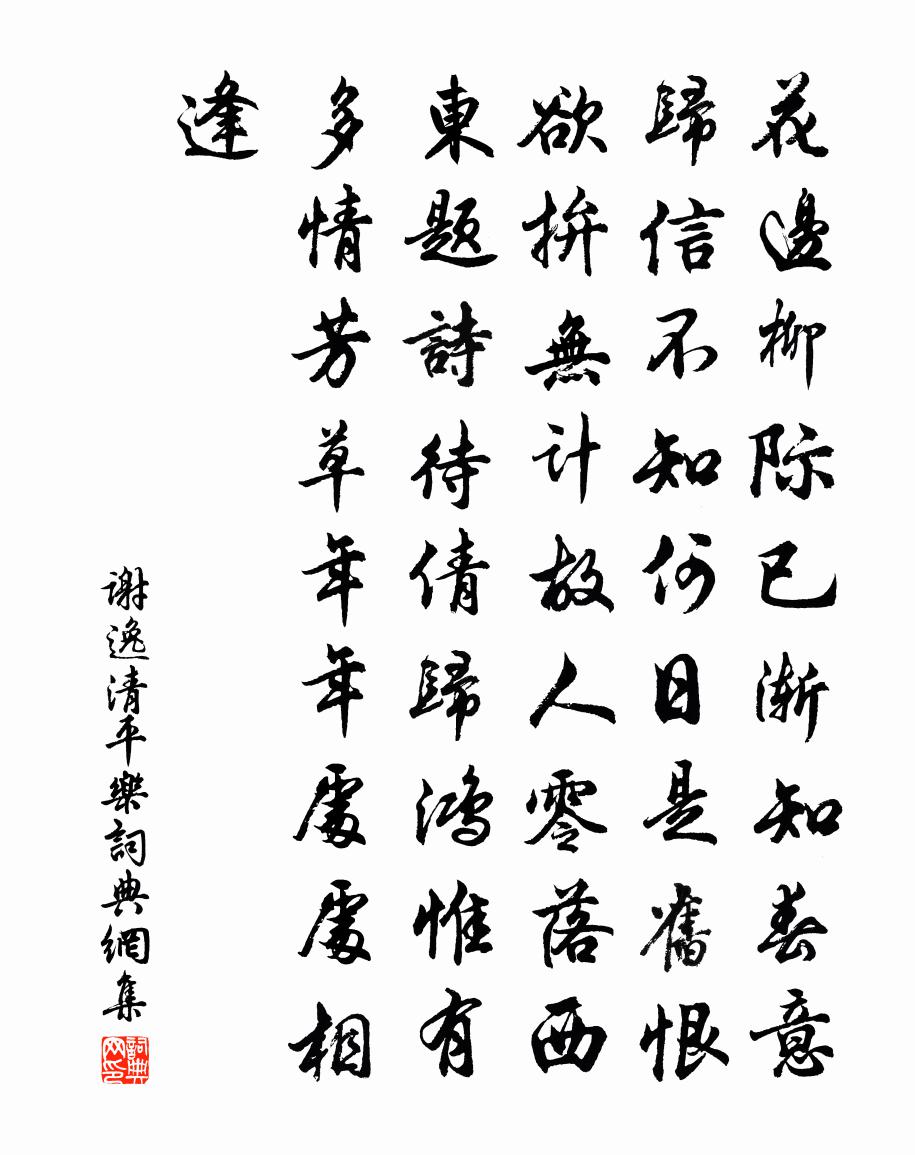 花邊柳际已渐知春意
歸信不知何日是舊恨
欲拚無计故人零落西
東題詩待倩歸鴻惟有
多情芳草年年處處相
逢
谢逸清平樂詞典網集
詞典网印